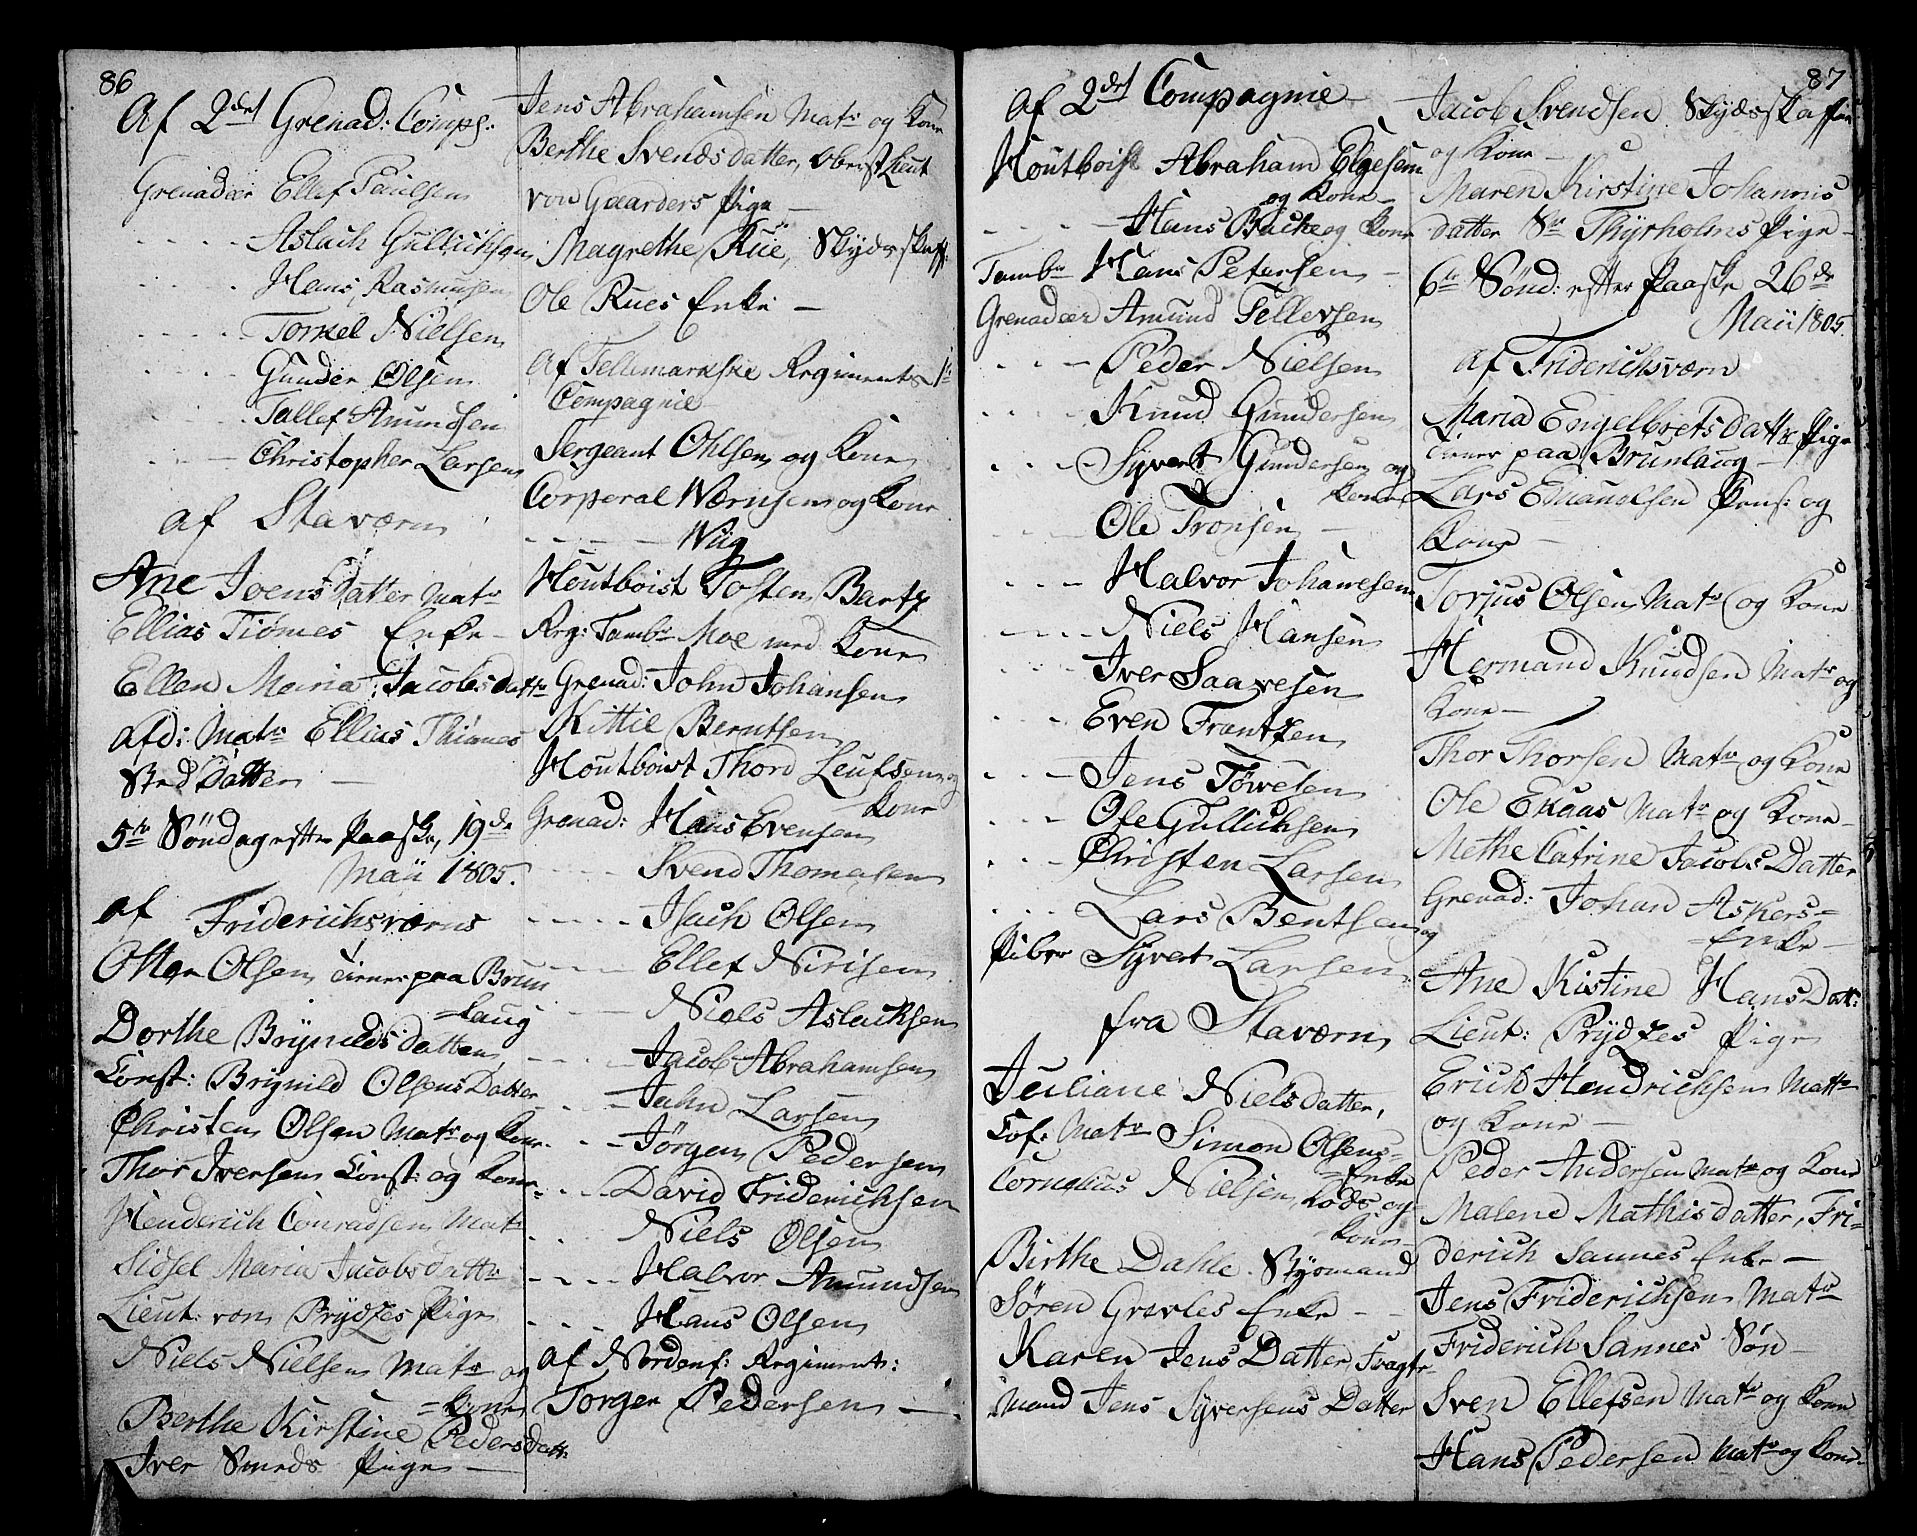 86
Af 2det Grenad: Comp:
Grenadeer Ellef Paulsen
- - - - Aslach Gullichsen
- - - - Hans Rasmusen
- - - - Torkel Nielsen
Gunder Olsen
- - - - Tallef Amundsen
- - - Christopher Larsen
af Staværn
Ane Joensdatter Matr
Ellias Tiømes Enke -
Ellen Maria Jacobsdattr
afd: Matr Ellias Thiømes
Sted Datter -
5te Søndag efter Paaske, 19de
Maii 1805.
af Friderichsværns
Otter Olsen tiener paa Brun
=laug
Dorthe Brÿnildsdatter
Const: Brÿnild Olsens Datter
Christen Olsen Matr og Kone
Thor Iversen Const: og Kone
Henderich Conradsen Matr
Sidsel Maria Jacobsdattr
Lieut: von Prÿdzes Pige
Niels Nielsen Matr og
=Kone
Berthe Kirstine Pedersdatt:
Iver Smeds Pige -
Jens Abrahamsen Matr og Kone
Berthe Svendsdatter, Oberst Lieut
von Gaarders Pige -
Magrethe Rüe, Skÿdsskaff:
Ole Rues Enke -
Af Tellemarkske Regiments 1te
Compagnie
Sergeant Ohlsen og Kone
Corperal Wærnsen og Kone
- - - - - Wiig
Houtboist Tosten Bartz
Reg: Tambr Moe med Kone
Grenad: John Johansen
Kittil Berntsen
Houtboist Thord Leufsen og
Kone
Grenad: Hans Evensen
- - - - Svend Thomesen
- - - - - Isach Olsen
- - - - Ellef Nirisen
- - - Niels Aslachsen
- - - - Jacob Abrahamsen
- - - - Jahn Larsen
- - - Jörgen Pedersen
- - - - David Friderichsen
- - - Niels Olsen
- - - - Halvor Amundsen
- - - - Hans Olsen
Af Nordenf: Regiment:
Torger Pedersen -
Af 2det Compagnie
Houtboist Abraham Elgesem
og Kone -
- - - - - Hans Bache og Kone
Tambr Hans Petersen -
Grenadeer Amund Tellevsen
- - - - Peder Nielsen
- - - - Knud Gundersen
- - - - Syvert Gundersen og
Kone
- - - Ole Tronsen -
- - - - Halvor Johannesen
- - - - - Niels Hansen
- - - - Iver Saavesen
- - - Even Frantzen
- - - - Jens Töwesen
- - - - Ole Gullichsen
- - - - Christen Larsen
- - - - Lars Bentsen og
Piber Syvert Larsen
fra Staværn
Juliane Nielsdatter,
Cof: Matr Simon Olsens
=Enke
Cornelius Nielsen, Lods og
Kone -
Birthe Dahle Styrmand
Søren Gravles Enke -
Karen Jens Datter, Fragte
mand Jens Syversens Datter
87
Jacob Svendsen Skydsskaffer
og Kone -
Maren Kirstine Johannis
datter Sr Thÿrholms Pige -
6te Sönd: efter Paaske 26de
Maii 1805.
af Friderichsværn
Maria Engelbretsdattr Pige
tiener paa Brunlaug -
Lars Emanolsen Pens: og
Kone -
Torjus Olsen Matr og Kone
Hermand Knudsen Matr og
Kone -
Thor Thorsen Matr og Kone
Ole Ekaas Matr og Kone -
Methe Catrine Jacobs Datter
Grenad: Johan Askers=
=Enke -
Ane Kistine Hans Datt:
Lieut: Prÿdzes Pige
Erich Hendrichsen Mattr
og Kone -
Peder Andersen Matr og Kone
Malene Mathisdatter, Fri=
derich Sannes Enke -
Jens Friderichsen Matr
Friderich Sannes Søn -
Sven Ellefsen Matr og Kone
Hans Pedersen Matr og Kone